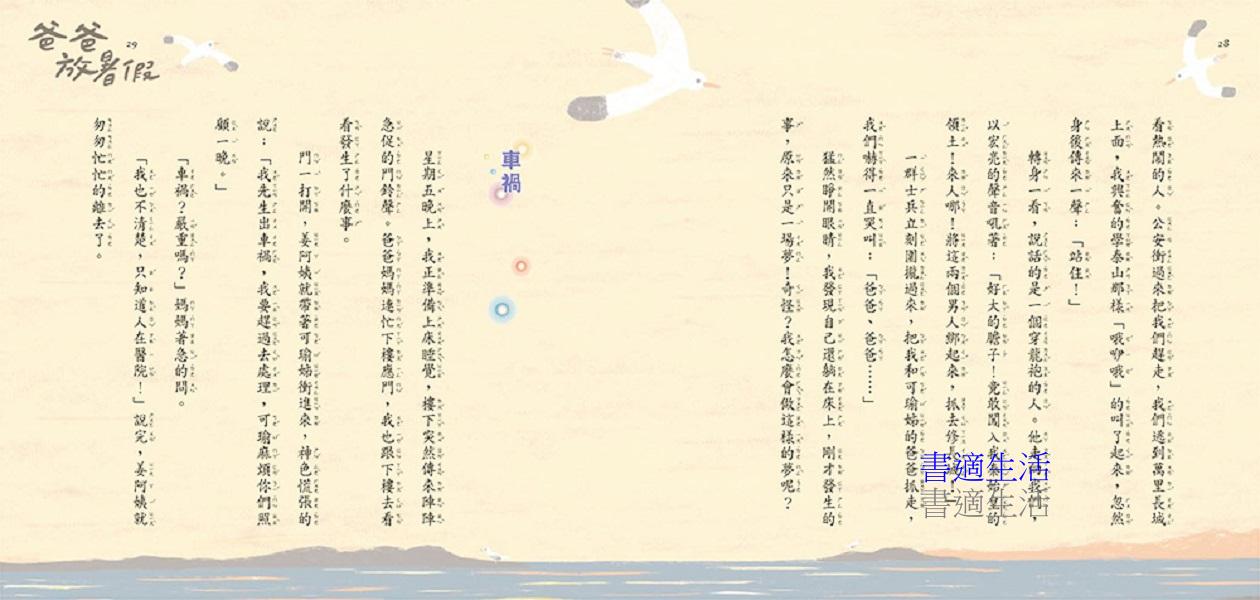 28
看熱鬧的人。公安衝過來把我們趕走，我們逃到萬里長城
上面，我興奮的學泰山那樣「哦咿哦」的叫了起來，忽然
身後傳來一聲：「站住！」
轉身一看，說話的是一個穿龍袍的人。他走向我們，
以宏亮的聲音吼著：「好大的膽子！竟敢闖入我秦始皇的
領土！來人哪！將這兩個男人綁起來，抓去修長城！」
一群士兵立刻圍攏過來，把我和可瑜姊的爸爸抓走，
我們嚇得一直哭叫：「爸爸、爸爸……」
猛然睜開眼睛，我發現自己還躺在床上，剛才發生的
事，原來只是一場夢！奇怪？我怎麼會做這樣的夢呢？
書適生活
書適生活
車禍
星期五晚上，我正準備上床睡覺，樓下突然傳來陣陣
急促的門鈴聲。爸爸媽媽連忙下樓應門，我也跟下樓去看
看發生了什麼事。
門一打開，姜阿姨就帶著可瑜姊衝進來，神色慌張的
說：「我先生出車禍，我要趕過去處理，可瑜麻煩你們照
顧一晚。」
「車禍？嚴重嗎？」媽媽著急的問。
「我也不清楚，只知道人在醫院！」說完，姜阿姨就
匆匆忙忙的離去了。
爸爸
放暑假
29